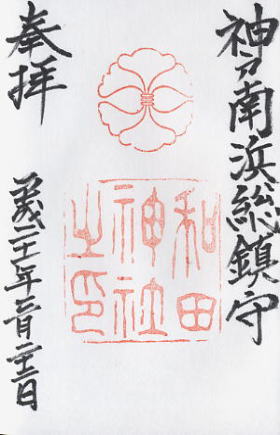 神戸南浜総鎮守
和田
神社
之印
奉拝
平成二十二年一月二十二日